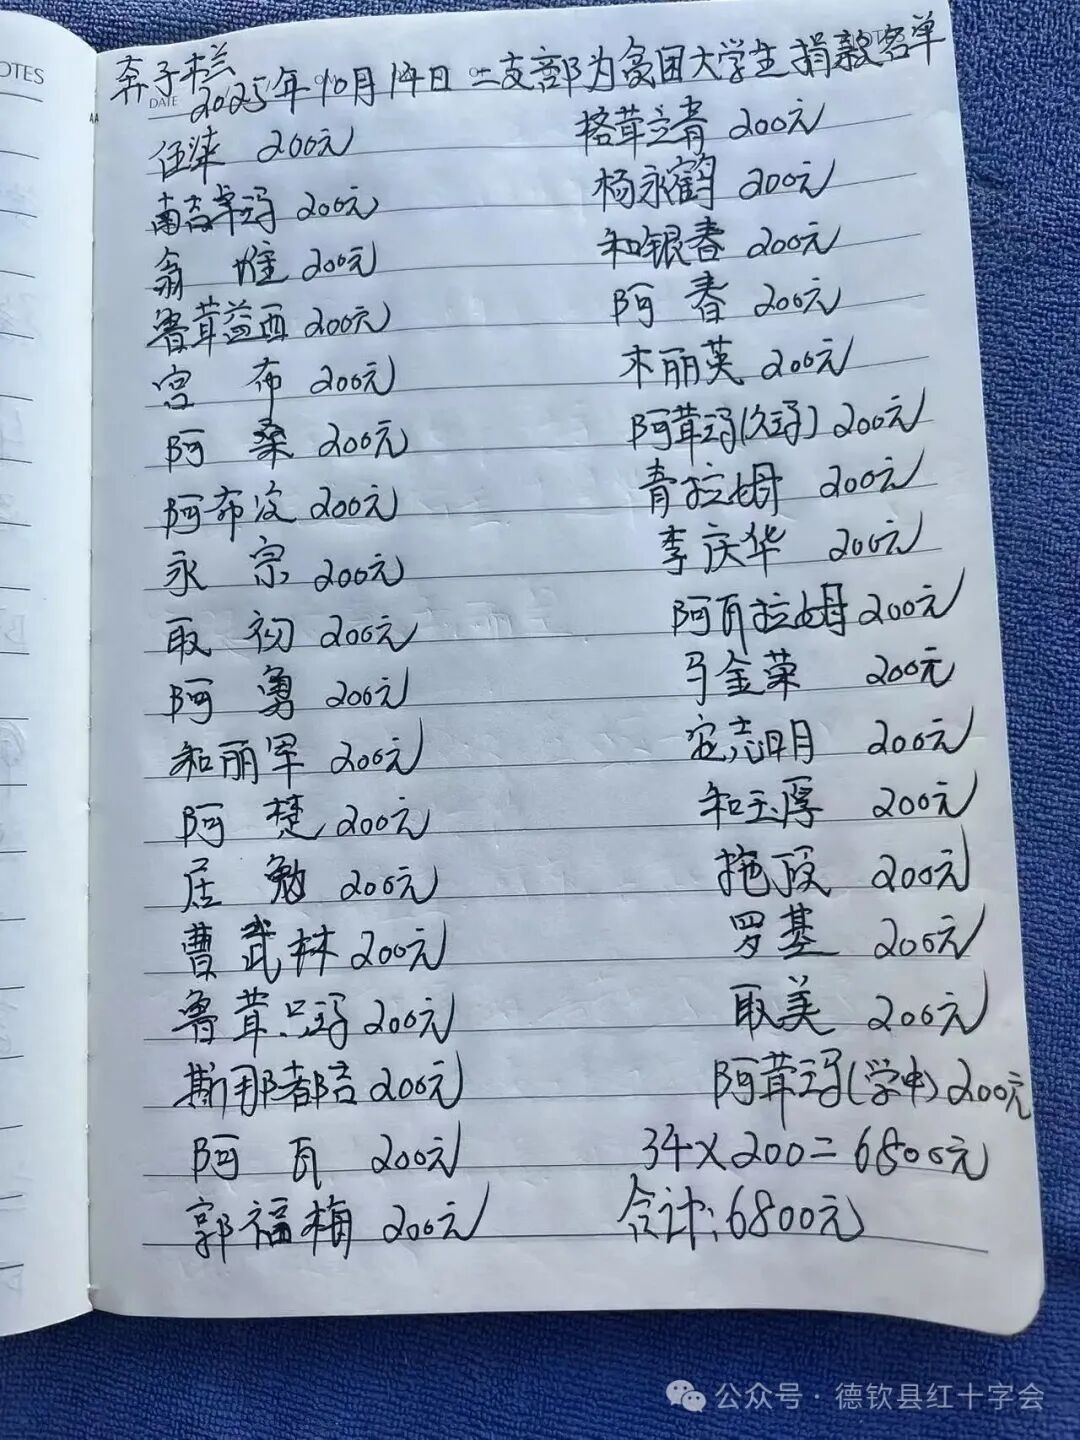 OTES
DATE
奔子栏
2025年10月14日 二支部为贫困大学生捐款名单
伍梁 200元
南吉卓玛 200元
翁堆 200元
鲁茸益西 200元
宫布 200元
阿桑 200元
阿布次 200元
永宗 200元
取初 200元
阿勇 200元
和丽军 200元
阿楚 200元
居勉 200元
曹武林 200元
鲁茸只玛 200元
斯那都吉 200元
阿瓦 200元
郭福梅 200元
格茸立青 200元
杨永鹤 200元
和银春 200元
阿春 200元
木丽英 200元
阿茸玛(久玛) 200元
青拉姆 200元
李庆华 200元
阿瓦拉姆 200元
马金荣 200元
定志明 200元
和玉厚 200元
拖段 200元
罗基 200元
取美 200元
阿茸玛(学中) 200元
34×200=6800元
合计:6800元
公众号·德钦县红十字会